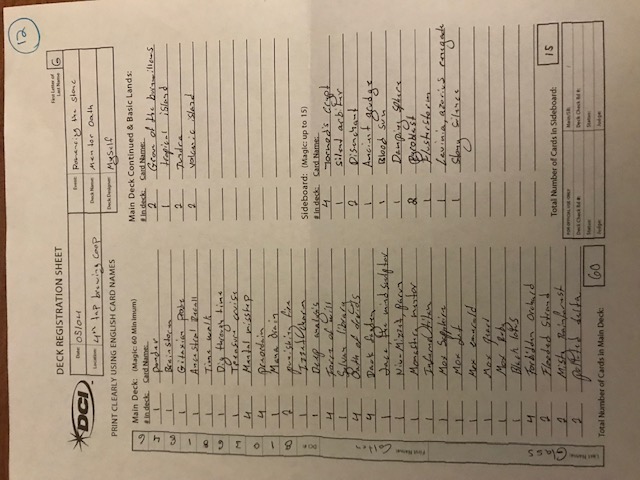 12
DECK REGISTRATION SHEET
First Letter of Last Name G
DCI
Date: 05/04
Event: Romancing the Stone
Location: 4th tap brewing coop
Deck Name: Mentor Oath
Deck Designer: Myself
PRINT CLEARLY USING ENGLISH CARD NAMES
Main Deck: (Magic: 60 Minimum)
# in deck: Card Name:
1 Ponder
1 Brainstorm
1 Gitaxian Probe
1 Ancestral Recall
1 Time walk
1 Dig through time
1 Treasure cruise
4 Mental misstep
4 preordain
1 Mana Drain
2 punishing fire
1 Izzet charm
1 Deep analysis
4 Force of will
1 Sylvan library
4 Oath of druids
4 Dack fayden
1 Jace, the mind sculptor
1 Niv-Mizzet, parun
1 Monastery mentor
1 Inferno titan
1 Mox Sapphire
1 Mox Jet
1 Mox emerald
1 Mox pearl
1 Mox Ruby
1 Black lotus
4 Forbidden Orchard
2 Flooded Strand
2 Misty Rainforest
2 polluted delta
Total Number of Cards in Main Deck: 60
Main Deck Continued & Basic Lands:
# in deck: Card Name:
2 Grove of the burnwillows
1 tropical island
2 Tundra
2 volcanic island
Sideboard: (Magic: up to 15)
# in deck: Card Name:
4 Tormod's crypt
1 Silent arbiter
2 Disenchant
1 Ancient grudge
1 Blood sun
1 Damping Sphere
2 Pyroblast
1 Flusterstorm
1 Lavinia, azorius renegade
1 Stony Silence
Total Number of Cards in Sideboard: 15
FOR OFFICIAL USE ONLY
Main/SB:
Deck Check Rd #:
Deck Check Rd #:
Status:
Status:
Judge:
Judge:
Last Name: Glass
First Name: Colton
DCI #: